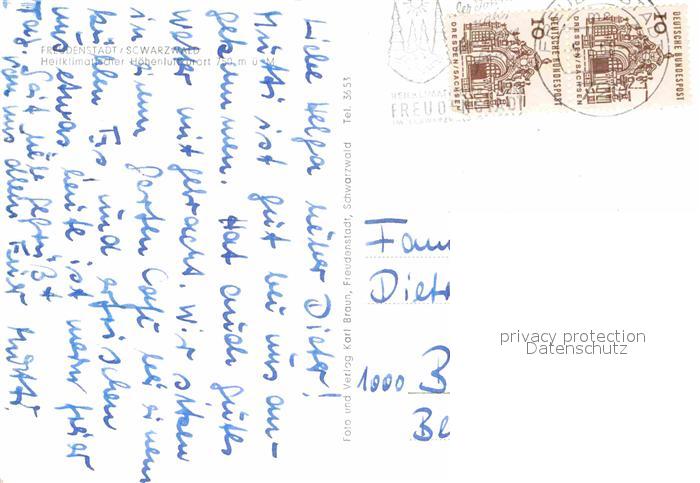 FREUDENSTADT / SCWARZWALD
Heilklimatischer Höhenluftkurort 750 m ü. M
Liebe Helga lieber Dieter!
Mutti ist gut bei uns an-
gekommen. Hat auch gutes
Wetter mitgebracht. Wir sitzen
in einem Garten Café bei einem
kühlen und erfrischen
uns etwas heute ist unser freier
Tag. Seid lieb gegrüßt
von uns allen Eure Mutti.
Foto und Verlag Karl Braun, Freudenstadt, Schwarzwald Tel. 3653
HEILKLIMAT
FREUDENSTADT
DEUTSCHE BUNDESPOST
10
DRESDEN/SACHSEN
DEUTSCHE BUNDESPOST
10
DRESDEN/SACHSEN
Fam
Diet
1000 B
Be
privacy protection
Datenschutz